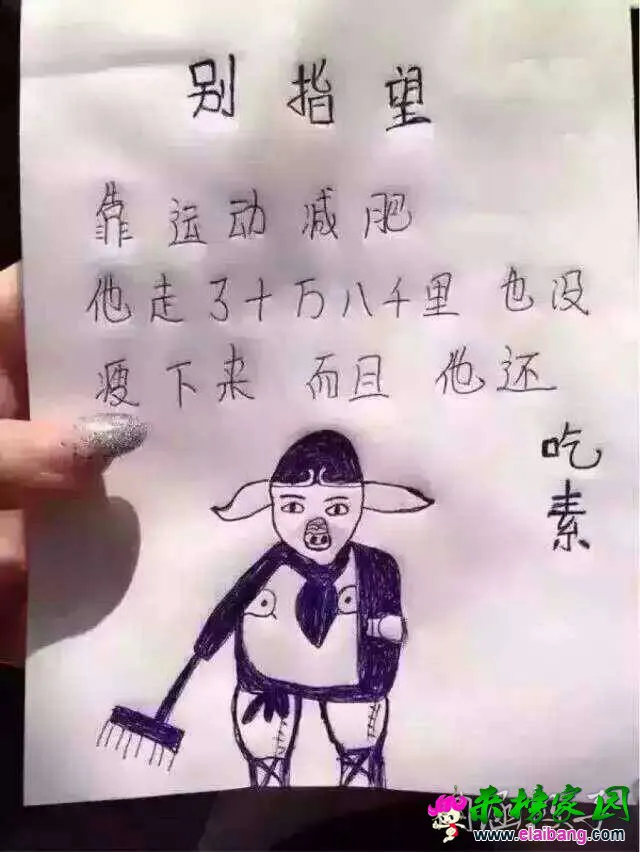 别指望
靠运动减肥
他走了十万八千里也没
瘦下来 而且 他还
吃素
来榜家园
www.elaibang.com